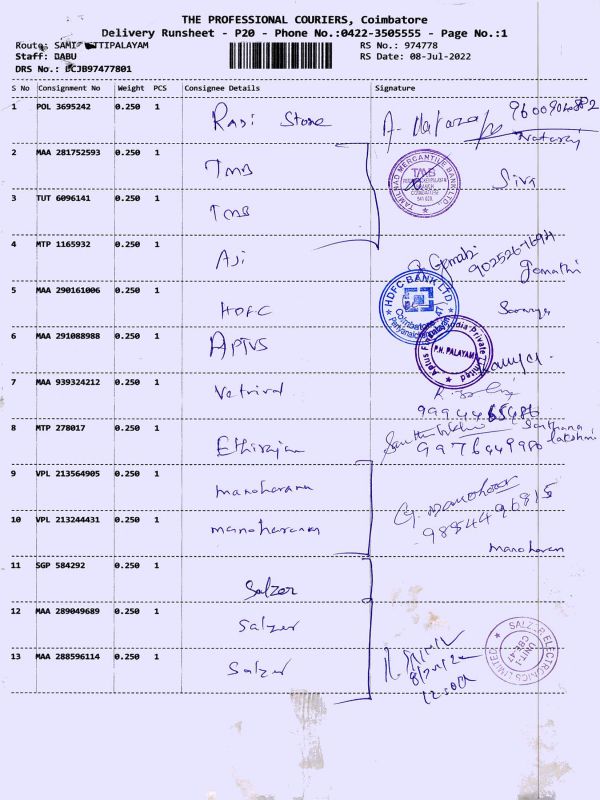 THE PROFESSIONAL COURIERS, Coimbatore
Delivery Runsheet - P20 - Phone No.:0422-3505555 - Page No.:1
Route: SAMI TTIPALAYAM
RS No.: 974778
Staff: BABU
RS Date: 08-Jul-2022
DRS No.: BCJB97477801
S No Consignment No Weight PCS Consignee Details Signature
1 POL 3695242 0.250 1 Radi Store
Nataraj
2 MAA 281752593 0.250 1 TMB
TAMILNAD MERCANTILE BANK LTD
TMB
COIMBATORE
Siva
3 TUT 6096141 0.250 1 TMB
4 MTP 1165932 0.250 1 Aji
9025267694
Gomathi
5 MAA 290161006 0.250 1 HDFC
HDFC BANK LTD
Coimbatore - 47
Sowmya
6 MAA 291088988 0.250 1 APTUS
P.N. PALAYAM
7 MAA 939324212 0.250 1 Vetrivel
8 MTP 278017 0.250 1 Ethirajan
Santhana lakshmi
9976449980
9 VPL 213564905 0.250 1 manoharan
G. Manohar
9894496815
10 VPL 213244431 0.250 1 manoharan
Manoharan
11 SGP 584292 0.250 1 Salzer
12 MAA 289049689 0.250 1 Salzer
SALZER ELECTRONICS LIMITED
UNIT-1
CBE-47
13 MAA 288596114 0.250 1 Salzer